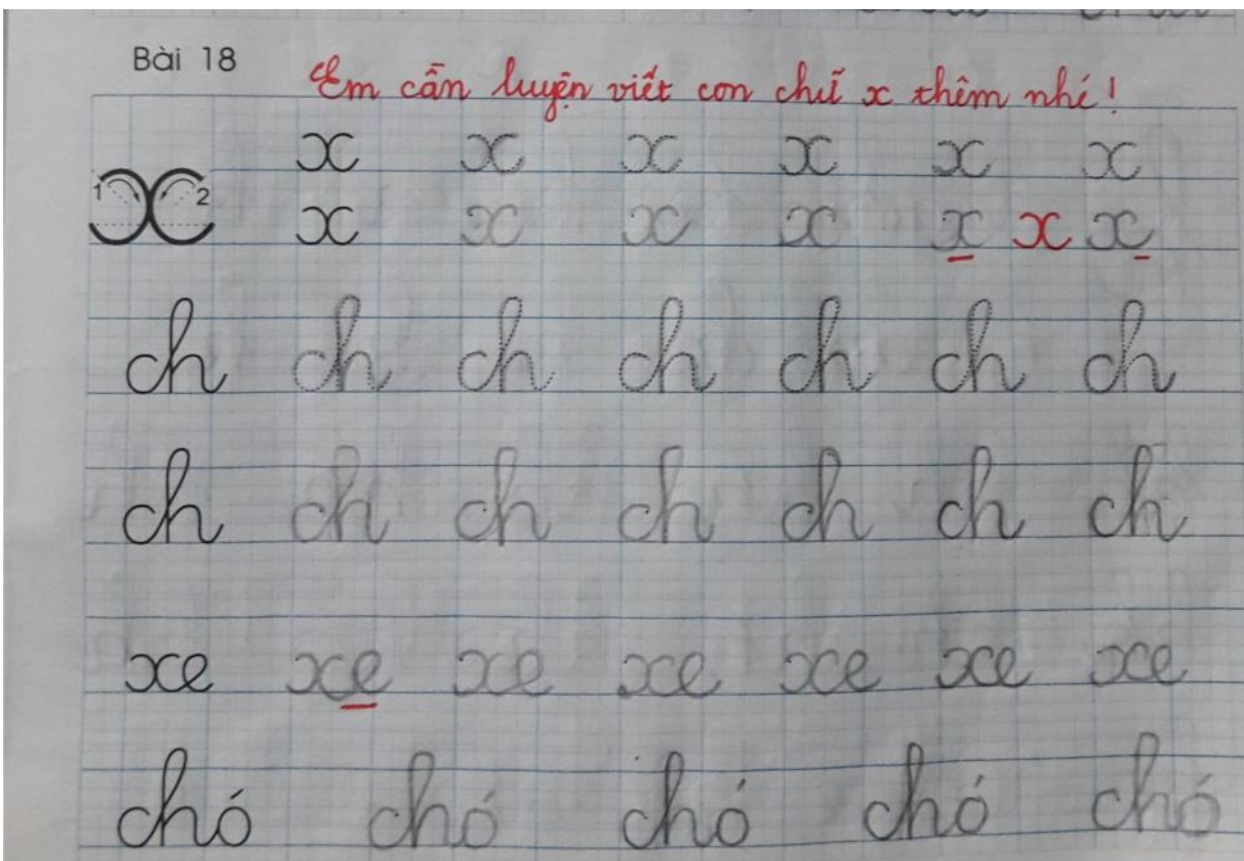 Bài 18
Em cần luyện viết con chữ x thêm nhé!
x x x x x x
1 x 2
x x x x x x x
ch ch ch ch ch ch ch
ch ch ch ch ch ch ch
xe xe xe xe xe xe xe
chó chó chó chó chó